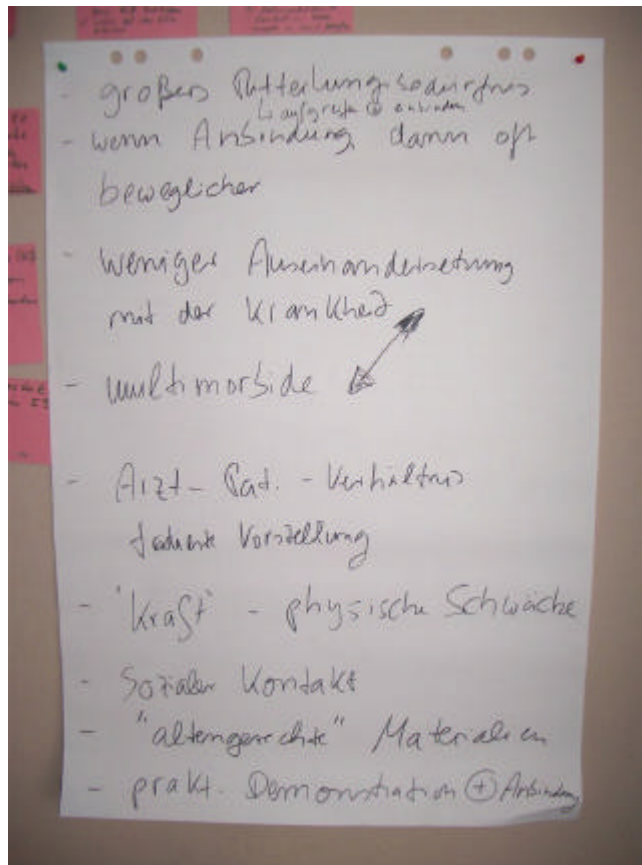 - großers Mitteilungsbedürfnis
↳ aufgreifen ⊕ anbinden
- wenn Anbindung dann oft
beweglicher
- weniger Auseinandersetzung
mit der Krankheit
- multimorbide
- Arzt - Pat. - Verhältnis
Vorstellung
- 'Kraft' - physische Schwäche
- Sozialer Kontakt
- "altengerechte" Materialien
- prakt. Demonstration ⊕ Anbindung